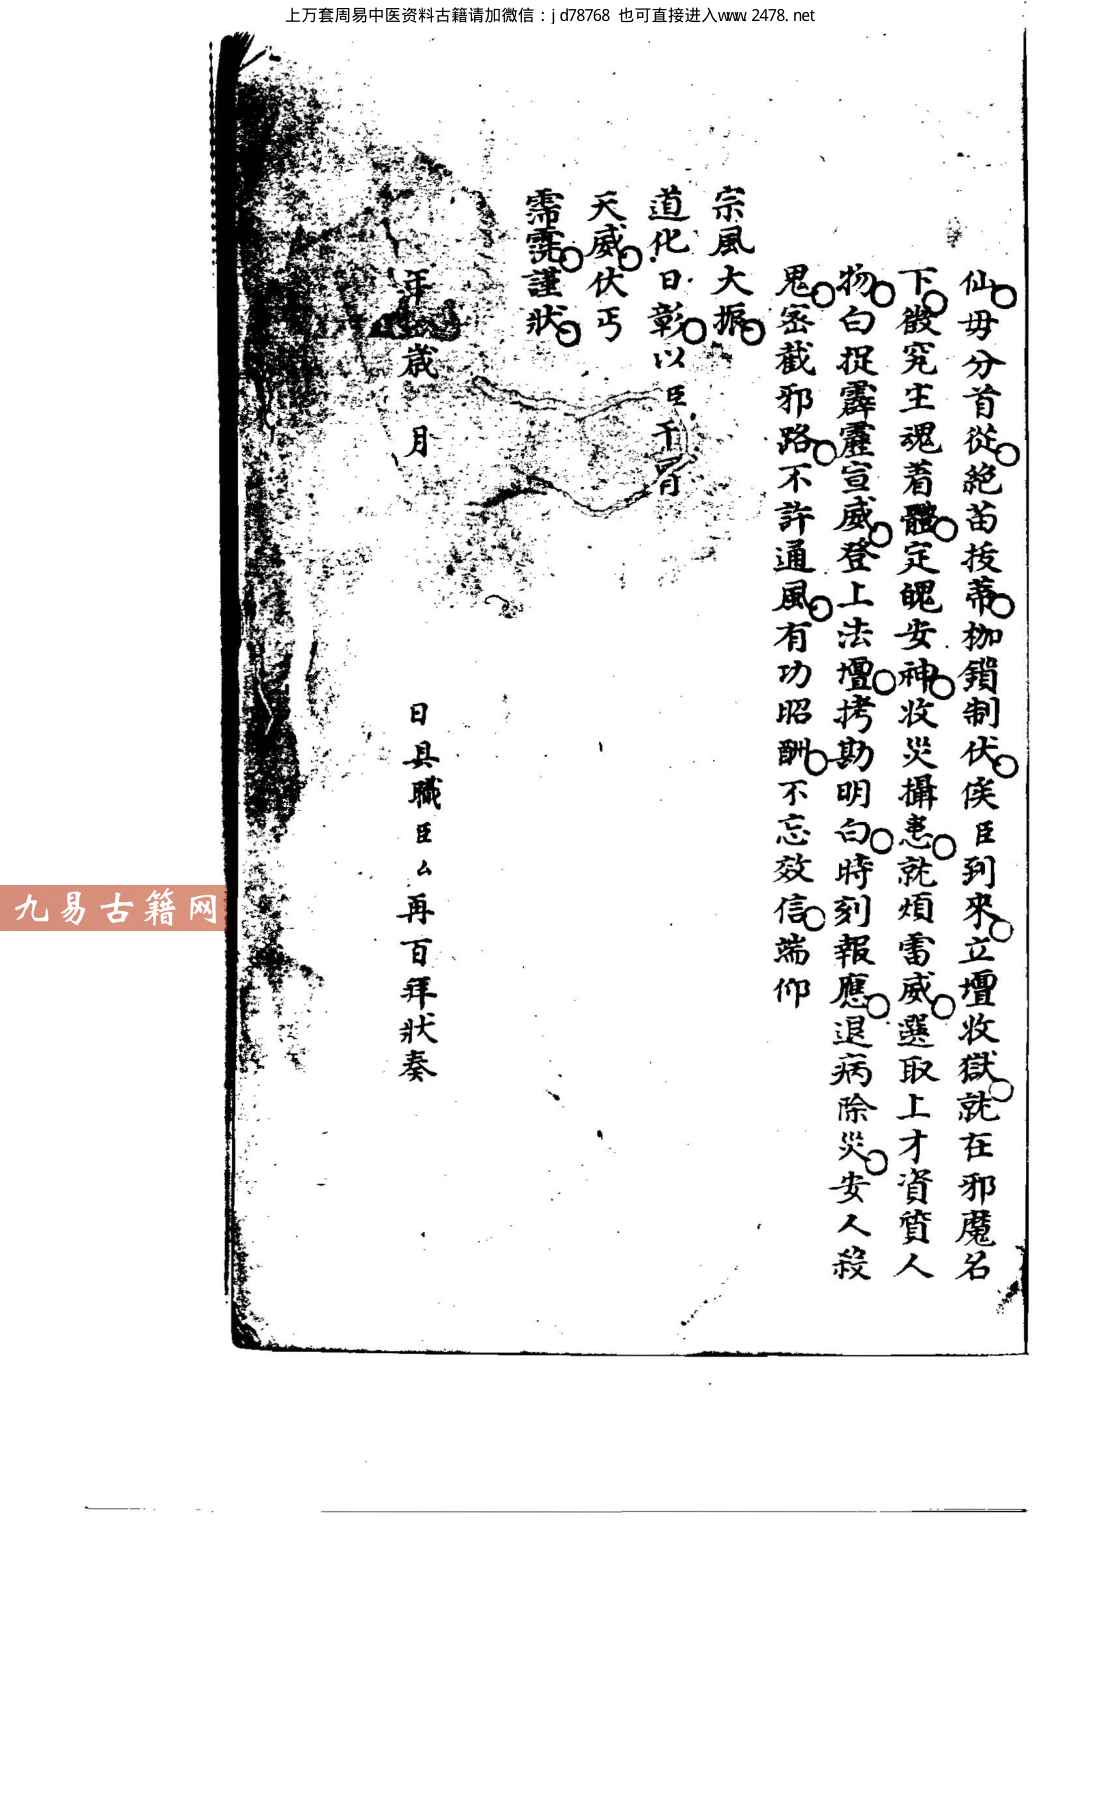 上万套周易中医资料古籍请加微信：jd78768 也可直接进入www.2478.net
仙毋分首從○絶苗拔蒂○枷鎖制伏○俟臣到來○立壇收獄○就在邪魔名
下○殺究主魂着體○定魄安神○收災攝恚○就煩雷威○選取上才資質人
物○白捉霹靂宣威○登上法壇○拷勘明白○時刻報應○退病除災○安人殺
鬼○密截邪路○不許通風○有功昭酬○不忘效信○端仰
宗風大振○
道化日彰○以臣千冐
天威○伏丐
霈霓○謹狀○
年 歲 月 日具職臣厶再百拜狀奏
九易古籍网